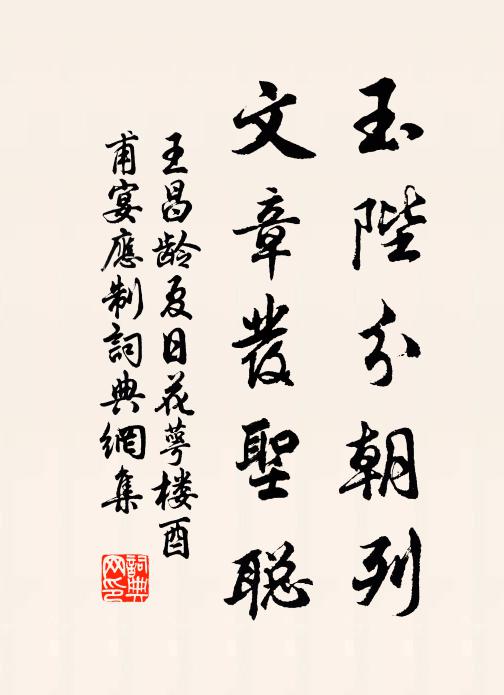 玉陛分朝列
文章發聖聪
王昌龄夏日花萼楼酉
甫宴應制詞典網集
詞典
网印